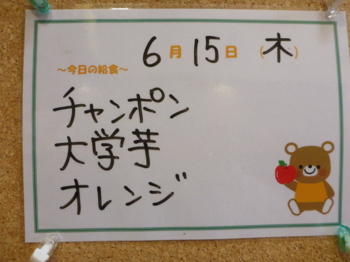 6月15日（木）
～今日の給食～
チャンポン
大学芋
オレンジ